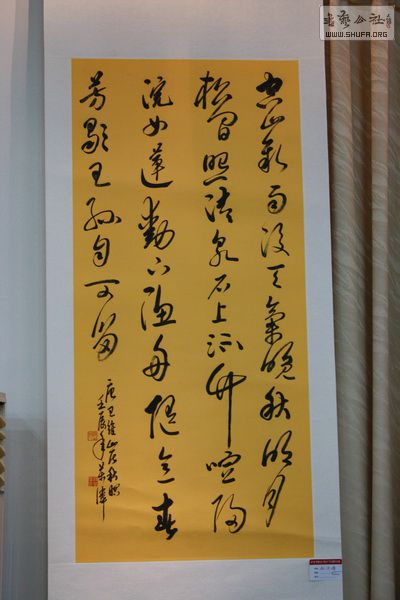 空山新雨後天氣晚秋明月
松間照清泉石上流竹喧歸
浣女蓮動下漁舟隨意春
芳歇王孫自可留
唐王維山居秋暝
壬辰年
書藝公社
WWW.SHUFA.ORG